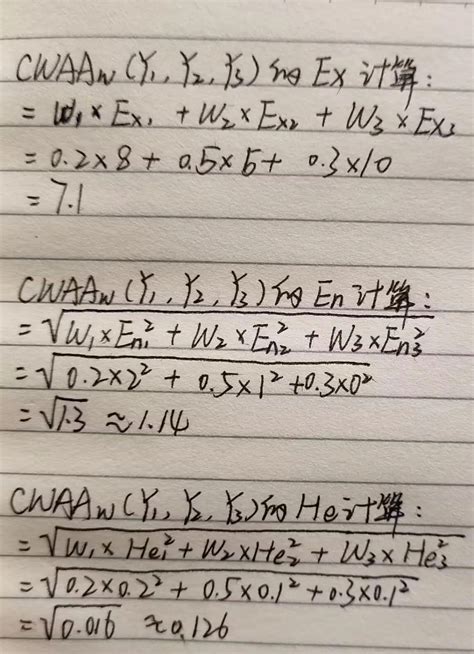 CWAAw(Y₁, Y₂, Y₃)的 Ex 计算:
= W₁ × Ex₁ + W₂ × Ex₂ + W₃ × Ex₃
= 0.2×8 + 0.5×5 + 0.3×10
= 7.1
CWAAw(Y₁, Y₂, Y₃)的 En 计算:
= √(W₁×En₁² + W₂×En₂² + W₃×En₃²)
= √(0.2×2² + 0.5×1² + 0.3×0²)
= √1.3 ≈ 1.14
CWAAw(Y₁, Y₂, Y₃)的 He 计算:
= √(W₁×He₁² + W₂×He₂² + W₃×He₃²)
= √(0.2×0.2² + 0.5×0.1² + 0.3×0.1²)
= √0.016 ≈ 0.126